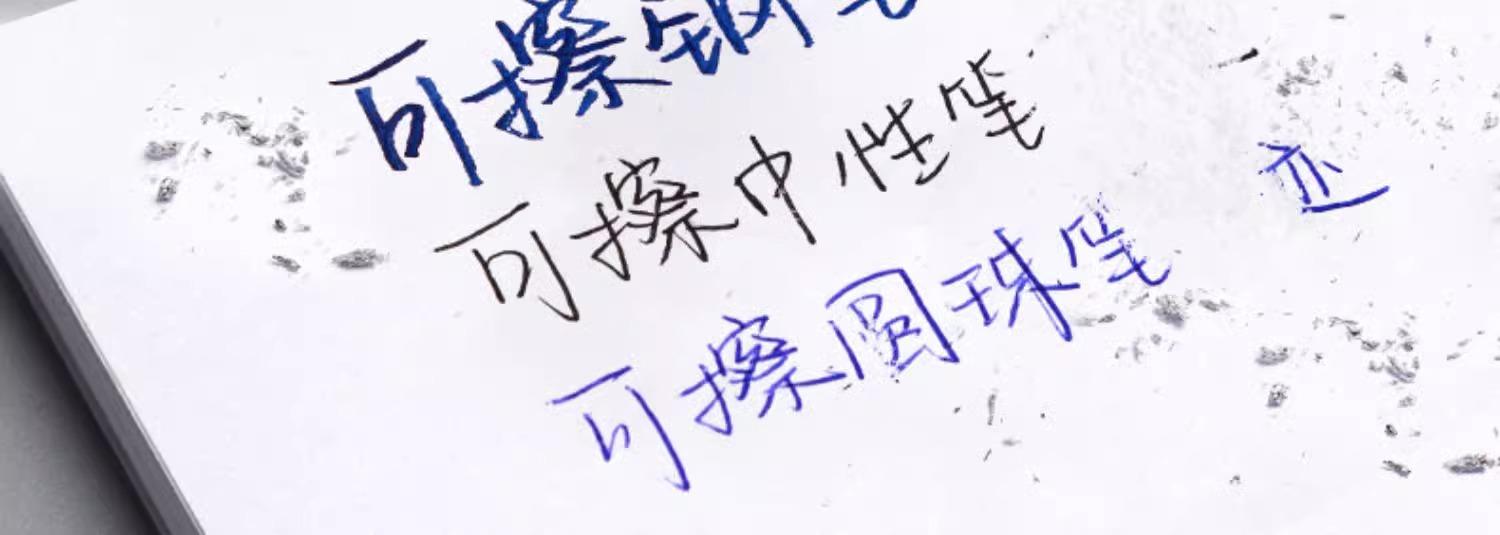 可擦钢笔
可擦中性笔
可擦圆珠笔
迹